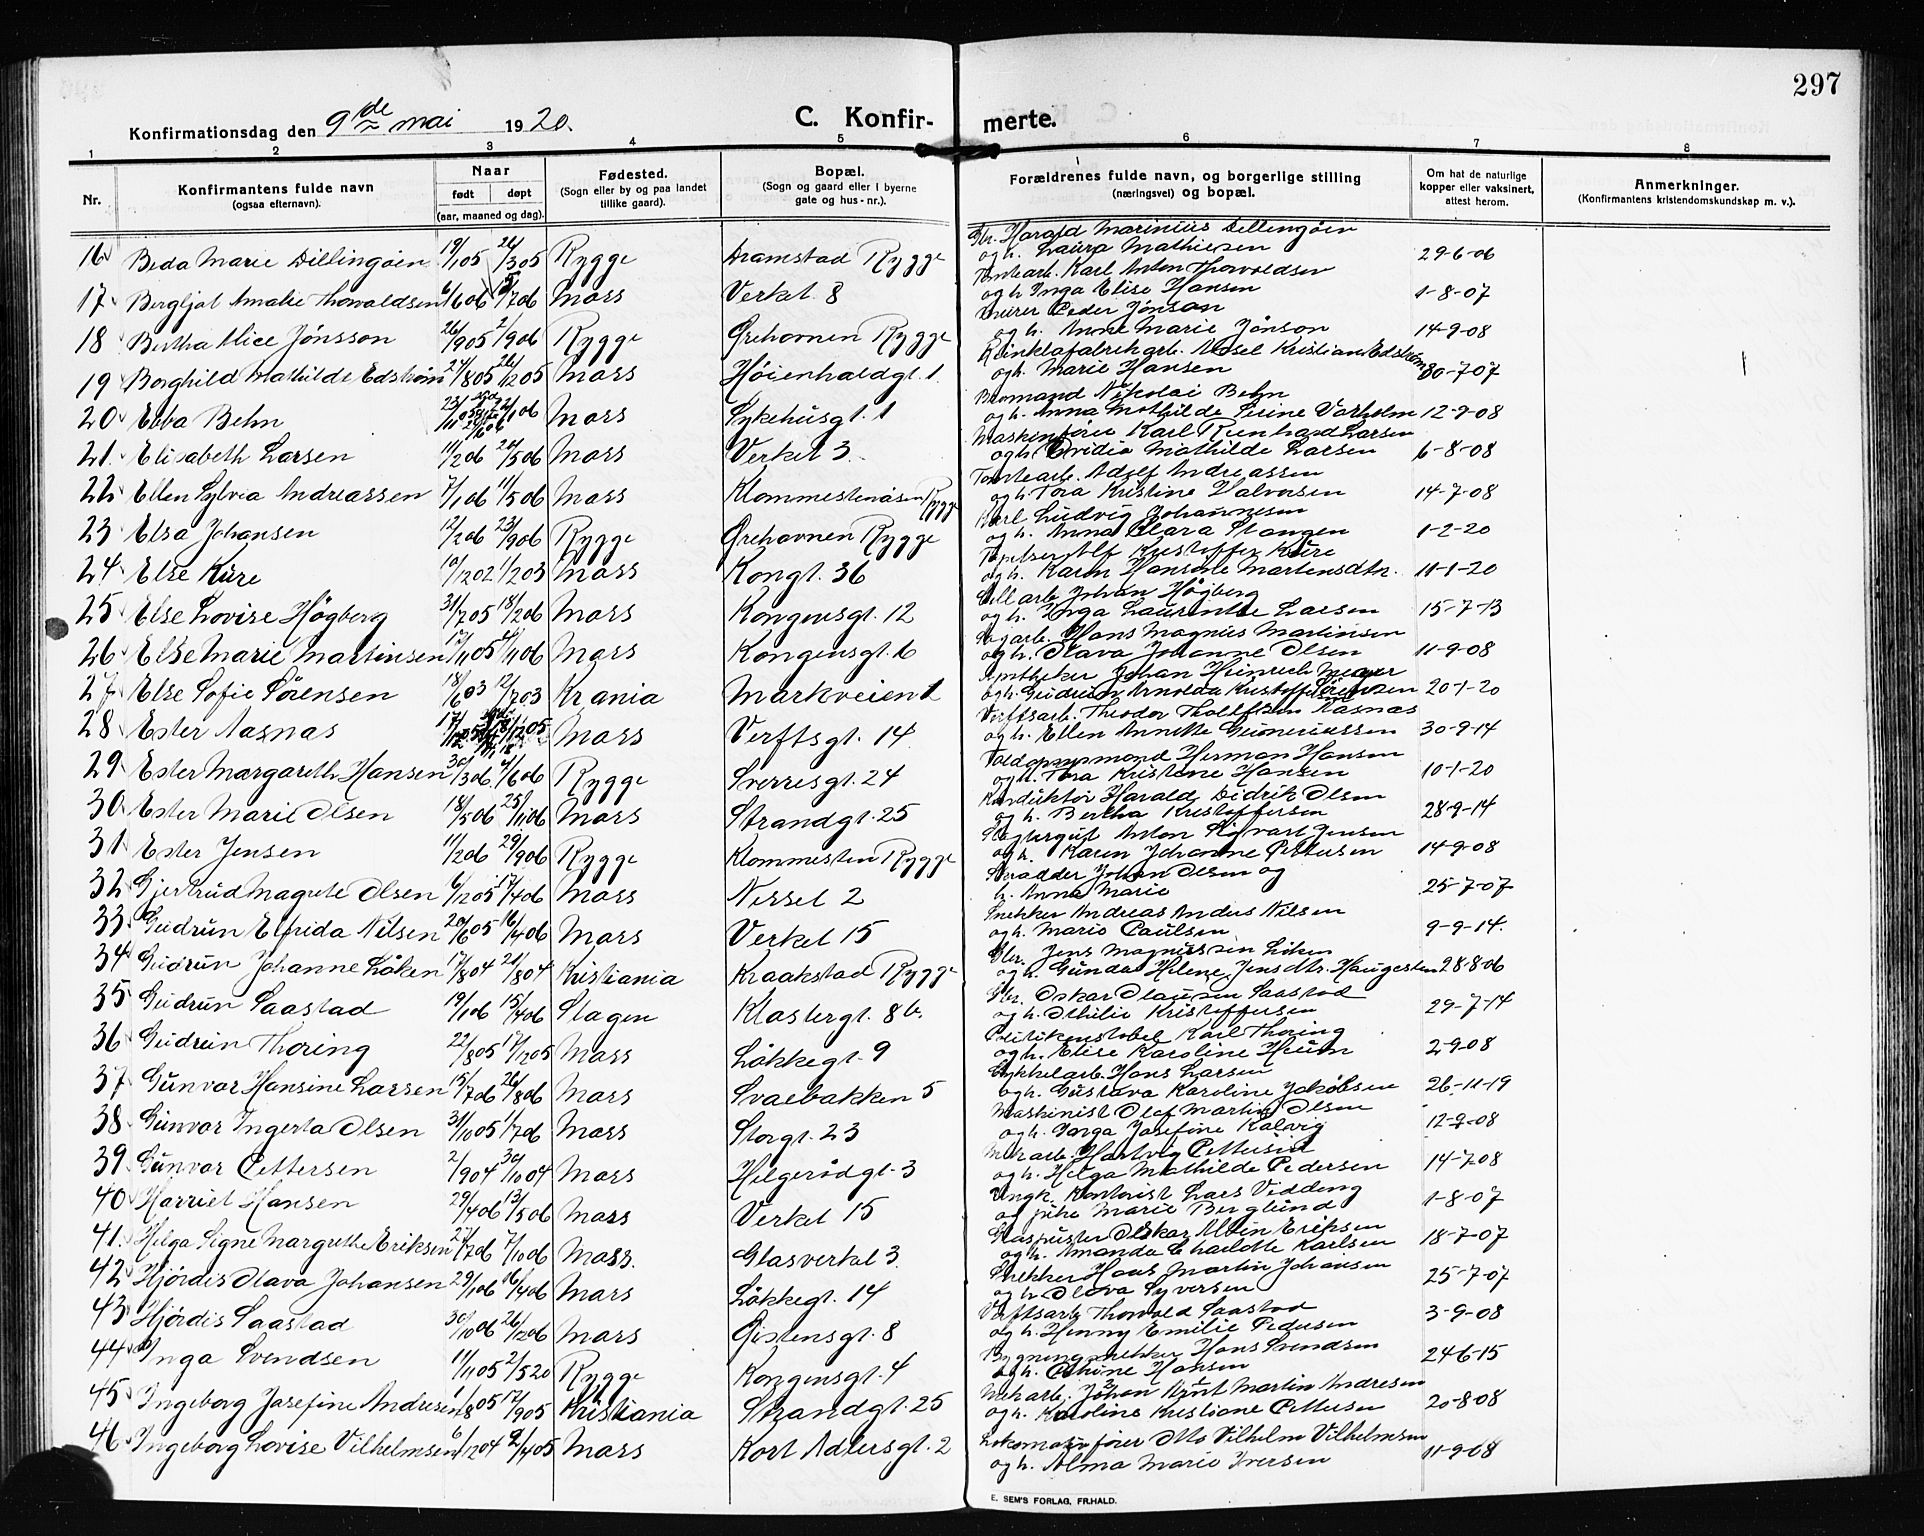 297
Konfirmationsdag den 9de mai 1920.
C. Konfir-merte.
1 2 3 4 5 6 7 8
Nr.
Konfirmantens fulde navn
(ogsaa efternavn).
Naar
født døpt
(aar, maaned og dag).
Fødested.
(Sogn eller by og paa landet
tillike gaard).
Bopæl.
(Sogn og gaard eller i byerne
gate og hus-nr.).
Forældrenes fulde navn, og borgerlige stilling
(næringsvei) og bopæl.
Om hat de naturlige
kopper eller vaksinert,
attest herom.
Anmerkninger.
(Konfirmantens kristendomskundskap m. v.).
16 Beda Marie Dillingøen 19/1 05 26/3 05 Rygge Dramstad Rygge Gbr. Harald Marinius Dillingøen
og h. Laura Mathiesen 29-6-06
17 Bergljot Amalie Thorvaldsen 6/6 06 Moss Verket 8 Tomtearb. Karl Anton Thorvaldsen
og h. Inga Elise Hansen 1-8-07
18 Bertha Alice Jønsson 26/9 05 2/9 06 Rygge Ørehavnen Rygge Murer Peder Jönson
og h. Anne Marie Jönson 14-9-08
19 Borghild Mathilde Edstrøm 24/8 05 26/12 05 Moss Høienhaldgt. 1 Axsel Kristian Edstrøm
og h. Marie Hansen 30-7-07
20 Ebba Behn Moss Sykehusgt. 1 Nikolai Behn
og h. Anna Mathilde Varholm 12-9-08
21 Elisabeth Larsen 11/2 06 20/5 06 Moss Verket 3 Maskinfører Karl Reinhard Larsen
og h. Ovidia Mathilde Larsen 6-8-08
22 Ellen Sylvia Andreassen 7/1 06 11/5 06 Moss Klommestenåsen Rygge Tomtearb. Adolf Andreassen
og h. Tora Kristine Halvorsen 14-7-08
23 Elsa Johansen 12/2 06 23/9 06 Rygge Ørehavnen Rygge Karl Ludvig Johannesen
og h. Anna Klara Stangen 1-2-20
24 Else Kure 10/12 02 1/2 03 Moss Kongt. 36 Tapetserer Alf Kristoffer Kure
og h. Karen Hansine Martensdtr. 11-1-20
25 Else Lovise Högberg 31/7 05 18/2 06 Moss Kongensgt. 12 Cell.arb. Johan Högberg
og h. Inga Laurentse Larsen 15-7-13
26 Else Marie Martinsen Moss Kongensgt. 6 Hans Magnus Martinsen
og h. Olava Johanne Olsen 11-9-08
27 Else Sofie Sörensen 18/6 03 12/7 03 Krania Markveien 1 Apotheker Johan Heinrich Meyer
og h. Gudrun Arnolda Sörensen 20-1-20
28 Ester Aasnas Moss Verftsgt. 14 Verftsarb. Theodor Aasnæs
og h. Ellen Annette 30-9-14
29 Ester Margareth Hansen 30/3 06 4/6 06 Rygge Sverresgt. 24 Herman Hansen
og h. Tora Kristine Hansen 10-1-20
30 Ester Marie Olsen 18/5 06 25/11 06 Moss Strandgt. 25 Konduktör Harald Didrik Olsen
og h. Bertha Kristoffersen 28-9-14
31 Ester Jensen 11/2 06 29/9 06 Rygge Klommesten Rygge Anton Sigvart Jensen
og h. Karen Johanne Pettersen 14-9-08
32 Gjertrud Magrete Olsen 6/12 05 17/4 06 Moss Nessel 2 Johan Olsen og
h. Anna Marie 25-7-07
33 Gudrun Elfrida Nilsen 20/6 05 16/4 06 Moss Verket 15 Snekker Andreas Anders Nilsen
og h. Marie Paulsen 9-9-14.
34 Gudrun Johanne Löken 17/8 04 21/8 04 Kristiania Kraakstad Rygge Gbr. Jens Magnussen Löken
og h. Gunda Helene Jensdtr. Haugesten 28-8-06
35 Gudrun Saastad 19/1 06 15/4 06 Slagen Klostergt. 8 b. Gbr. Oskar Olausen Saastad
og h. Othilie Kristoffersen 29-7-14
36 Gudrun Thoring 22/8 05 17/12 05 Moss Lökkegt. 9 Politikonstabel Karl Thoring
og h. Elise Karoline Heum 2-9-08
37 Gunvor Hansine Larsen 15/7 06 26/8 06 Moss Svaebakken 5 Sykkelarb. Hans Larsen
og h. Gustava Karoline Jakobsen 26-11-19
38 Gunvor Ingerta Olsen 31/10 05 1/7 06 Moss Storgt. 23 Maskinist Olaf Martin Olsen
og h. Inga Josefine Kalvig 12-9-08
39 Gunvor Pettersen 2/9 04 30/10 04 Moss Helgerödgt. 3 Hartvig Pettersen
og h. Helga Mathilde Pedersen 14-7-08
40 Harriet Hansen 29/4 06 13/5 06 Moss Verket 15 Ungk. Kontorist Lars Viddeng
og pike Marie Berglund 1-8-07
41. Helga Signe Margrethe Eriksen 7/10 06 Moss. Glasverket 3 Glaspuster Oskar Albin Eriksen
og h. Amanda Charlotte Karlsen 18-7-07
42 Hjördis Olava Johansen 29/1 06 16/4 06 Moss Lökkegt. 14 Snekker Hans Martin Johansen
og h. Olava Syversen 25-7-07
43 Hjördis Saastad 30/10 06 26/12 06 Moss Gistensgt. 8 Verftsarb. Thorvald Saastad
og h. Henny Emilie Pedersen 3-9-08
44 Inga Svendsen 11/11 05 2/5 20 Rygge Kongensgt. 4 Bygningssnekker Hans Svendsen
og h. Hansen 24-6-15
45 Ingeborg Josefine Andresen 1/8 05 17/9 05 Kristiania Strandgt. 25 Mek.arb. Johan Knut Martin Andresen
og h. Karoline Kristiane Pettersen 20-8-08
46 Ingeborg Lovise Vilhelmsen 6/12 04 2/4 05 Moss Kort Adlersgt. 2 Lokomotivfører Otto Vilhelm Vilhelmsen
og h. Alma Marie Iversen 11-9-08
E. SEM'S FORLAG, FR.HALD.